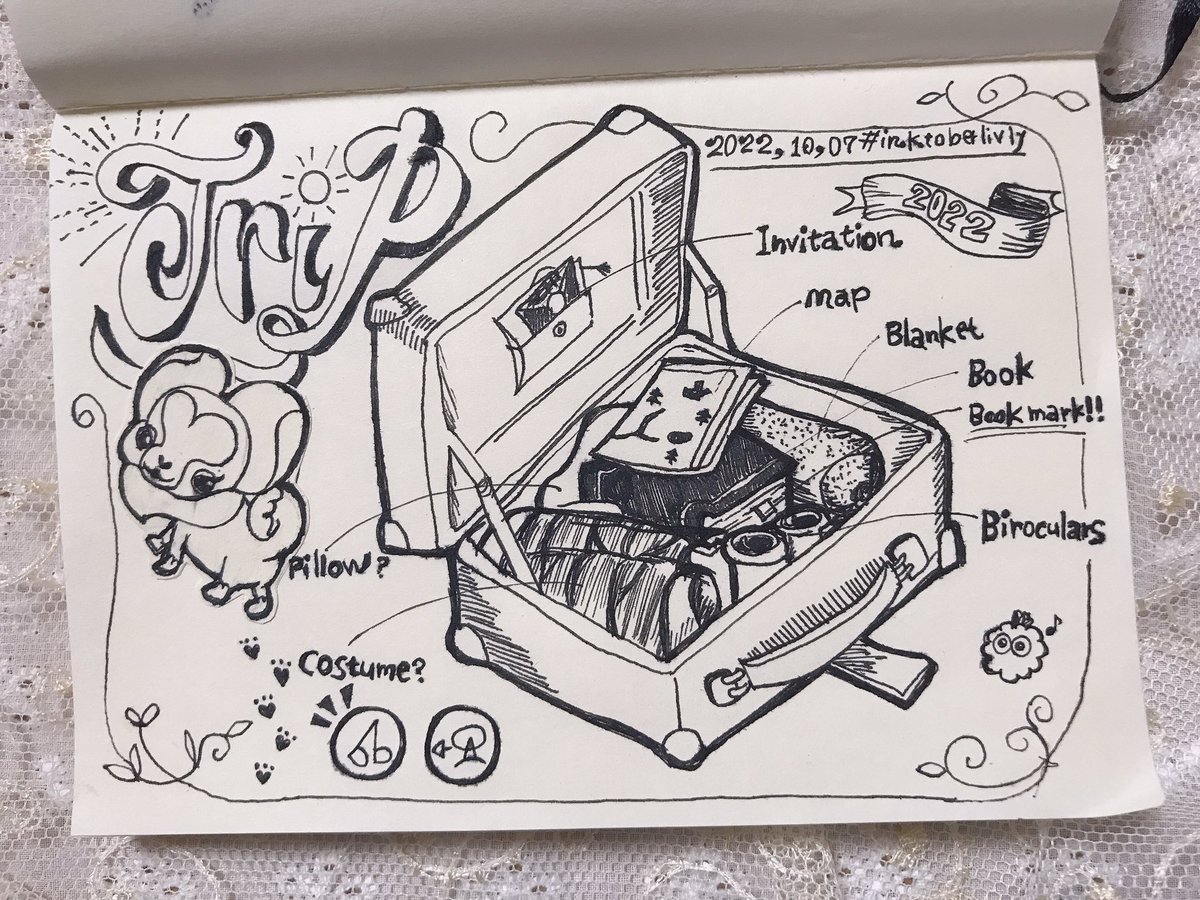 Trip
2022,10,07 #inktoberlivly
2022
Invitation
map
Blanket
Book
Bookmark!!
Biroculars
Pillow?
Costume?